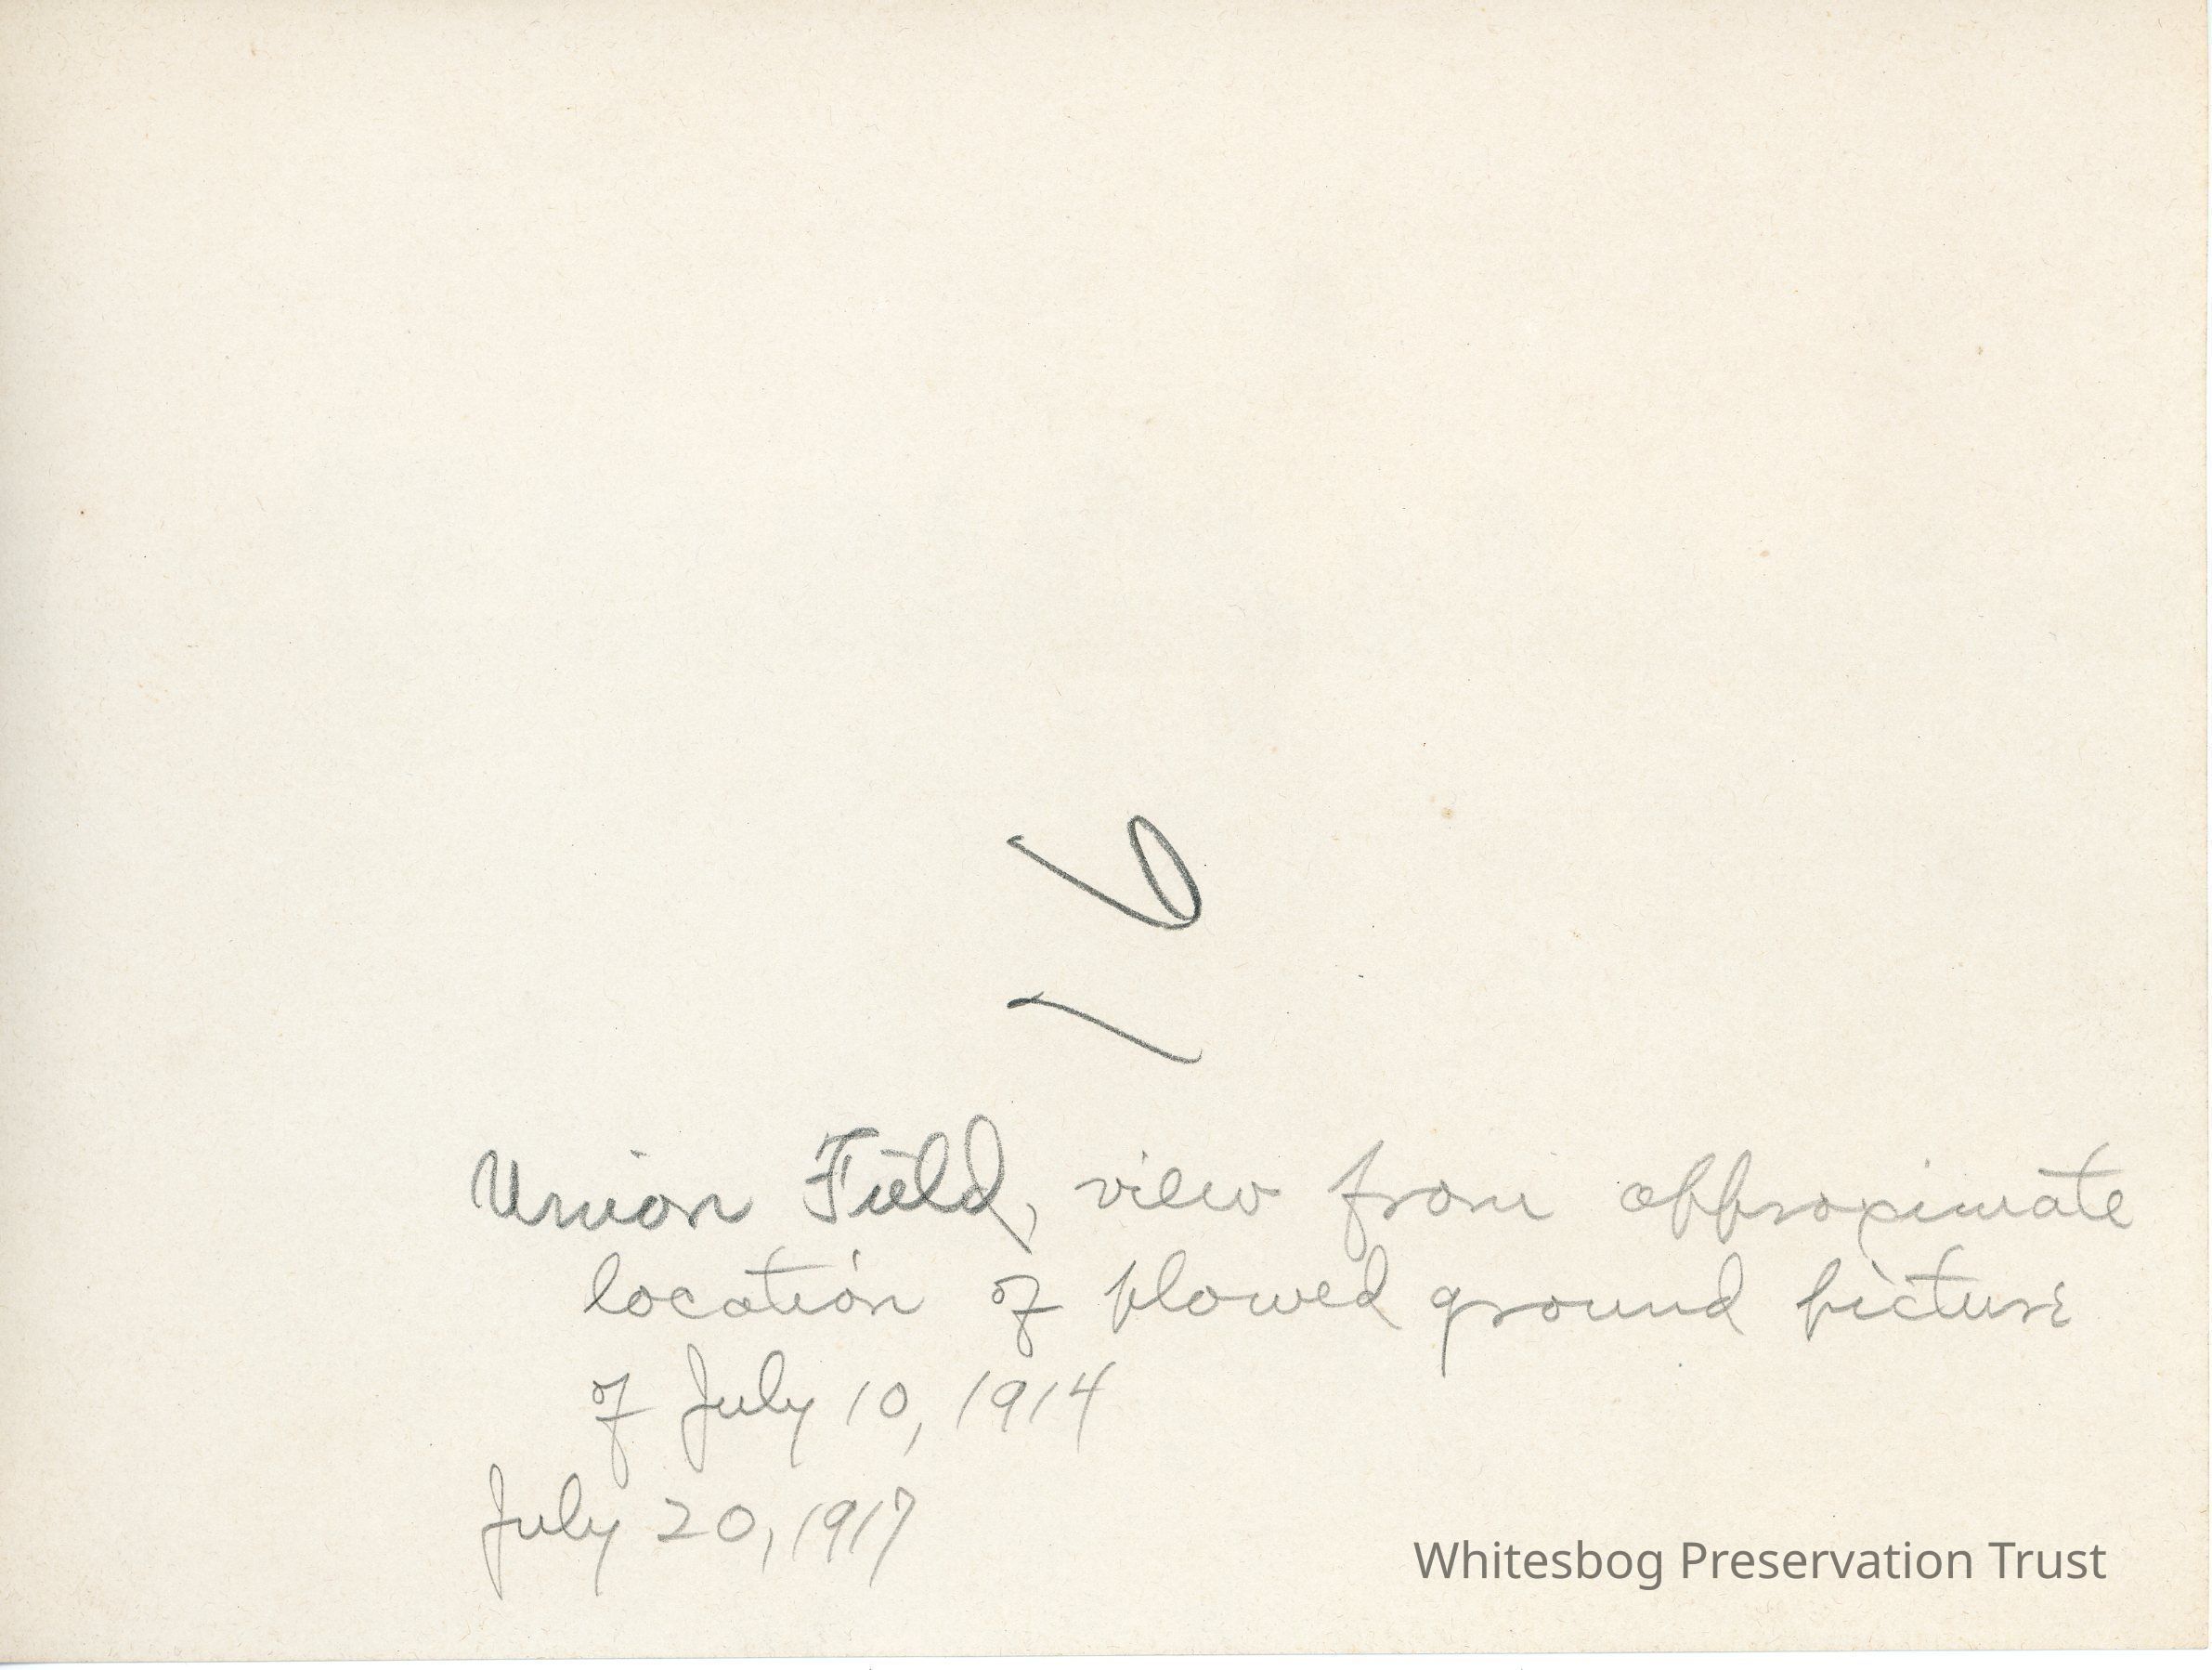 16
Union Field, view from approximate
location of plowed ground picture
of July 10, 1914
July 20, 1917
Whitesbog Preservation Trust